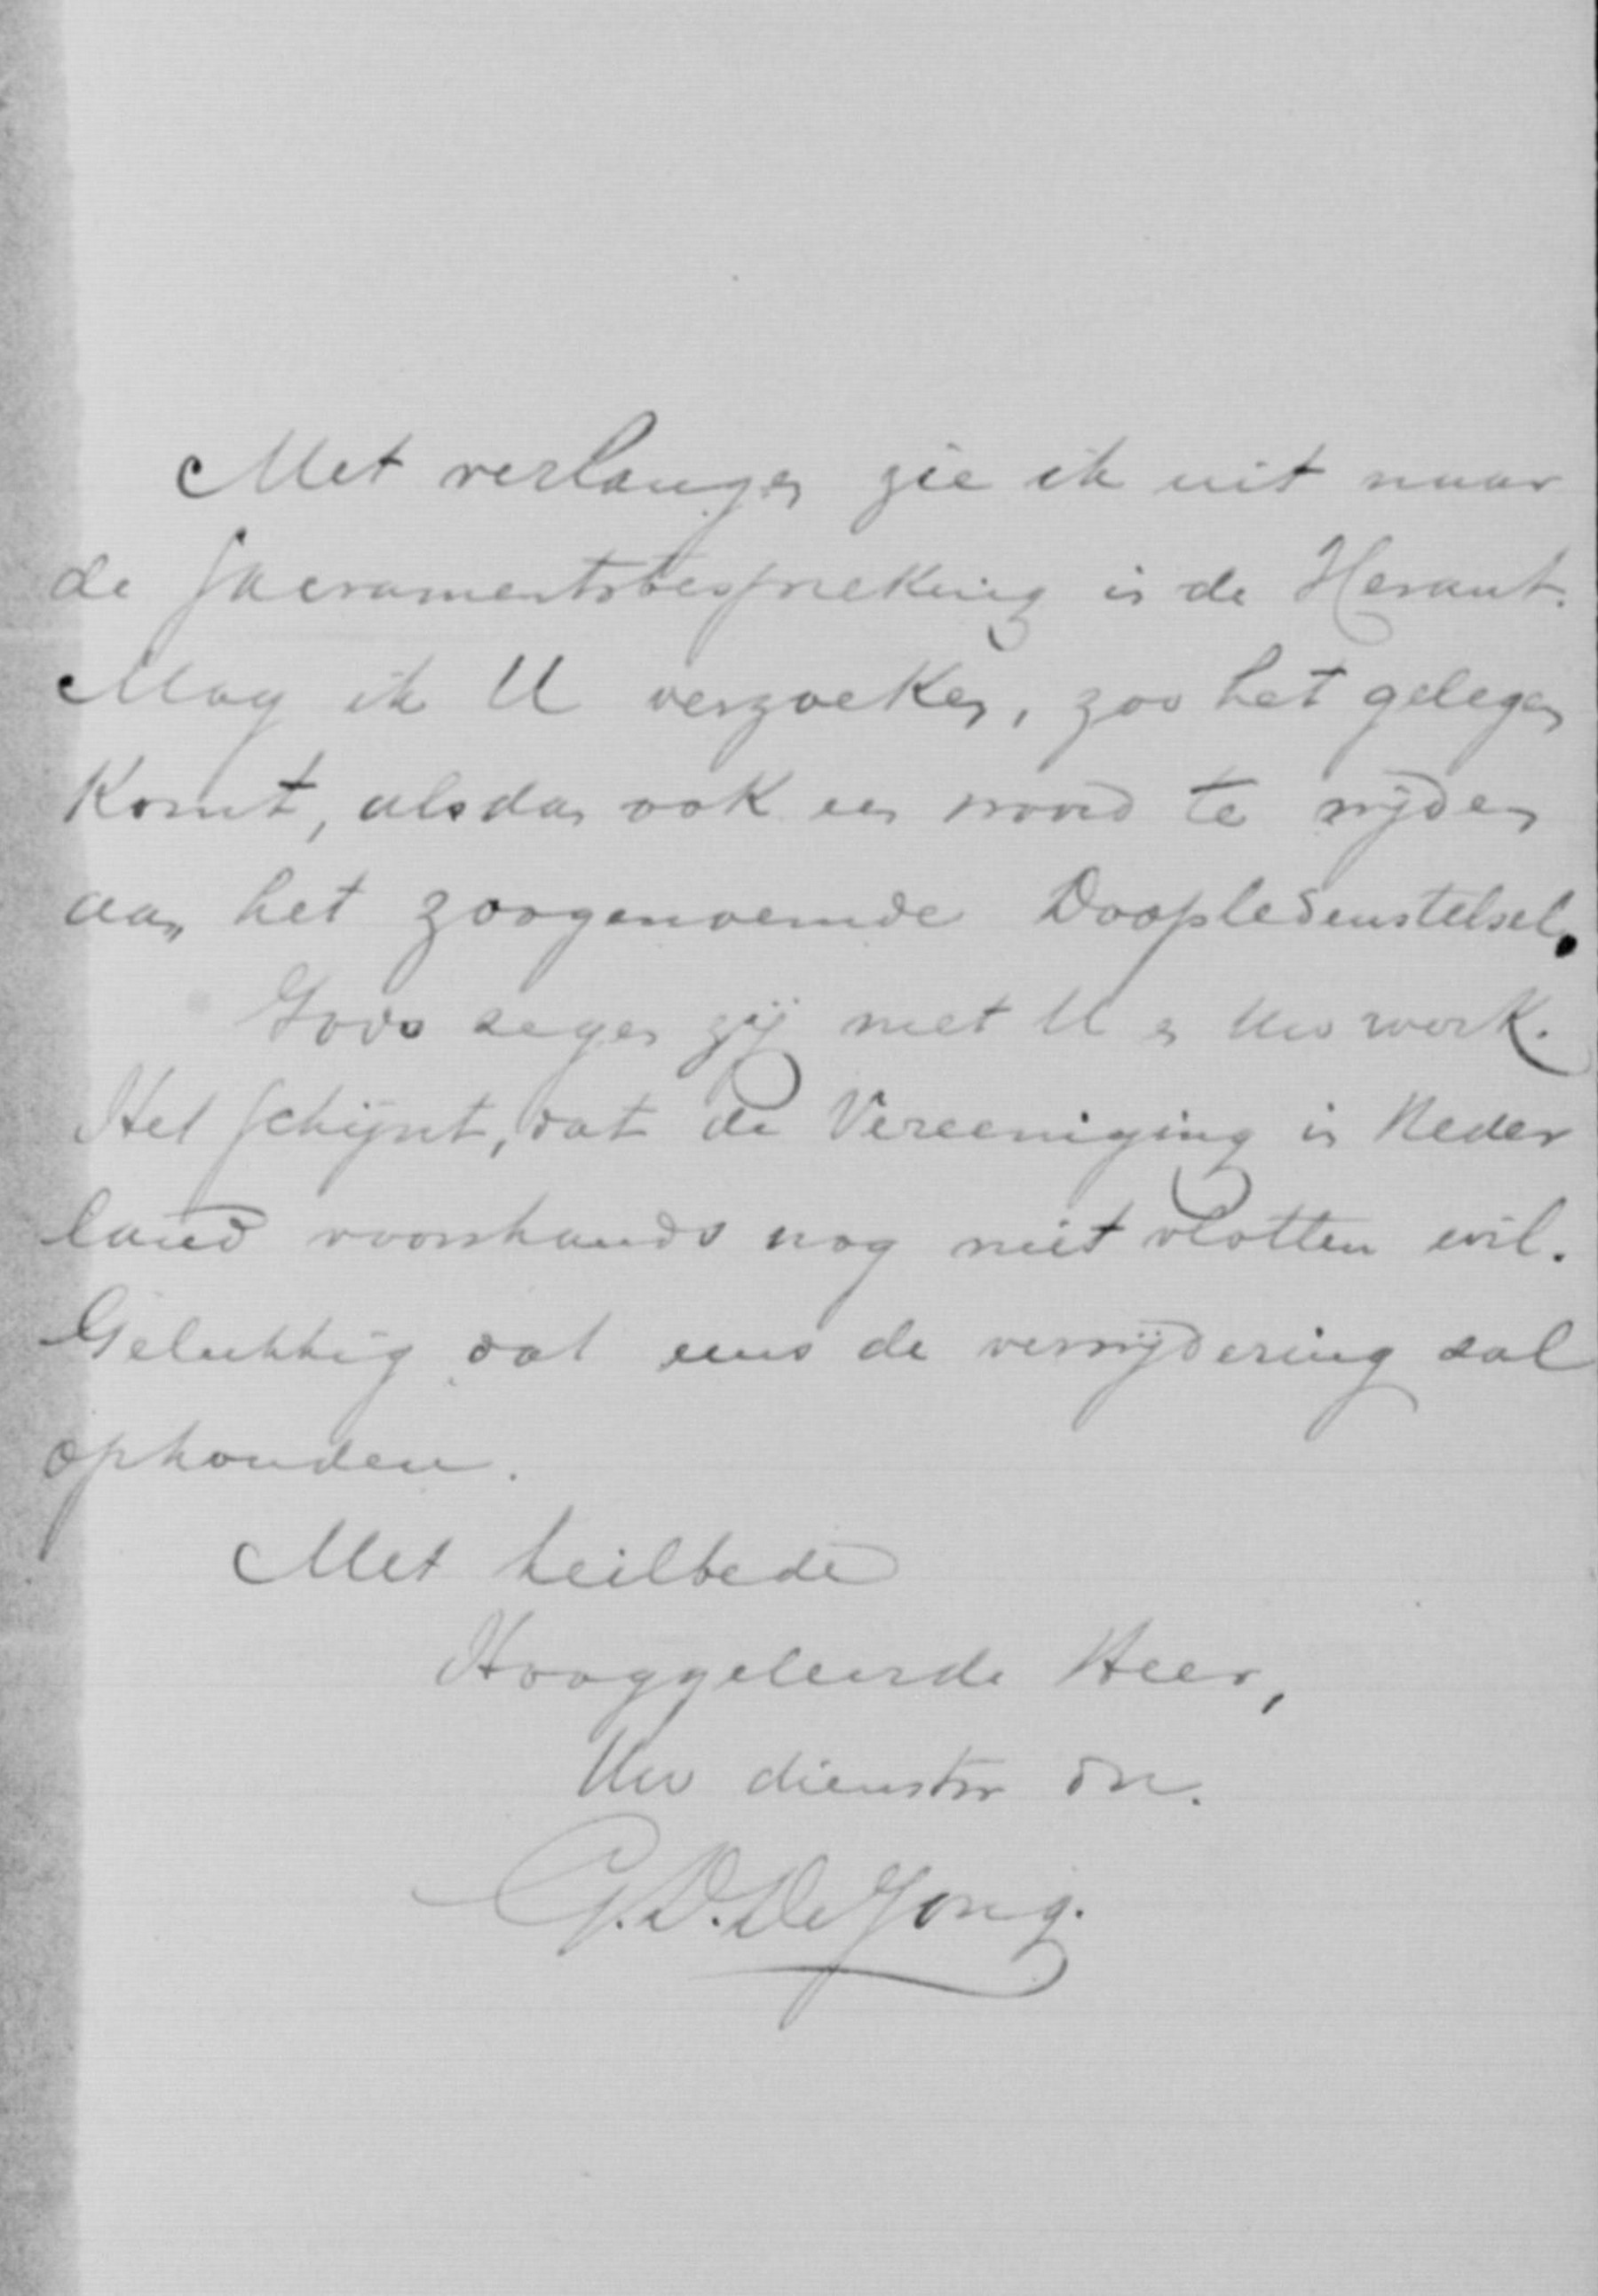 Met verlangen zie ik uit naar
de Sacramentsbespreking in de Heraut.
Mag ik U verzoeken, zoo het gelegen
komt, alsdan ook een woord te wijden
aan het zoogenoemde Doopledenstelsel.
Gods zegen zij met U en Uw werk.
Het schijnt, dat de Vereeniging in Neder
land voorshands nog niet vlotten wil.
Gelukkig dat eens de verwijdering zal
ophouden.
Met heilbede
Hooggeleerde Heer,
Uw dienstw dn.
G. D. De Jong.